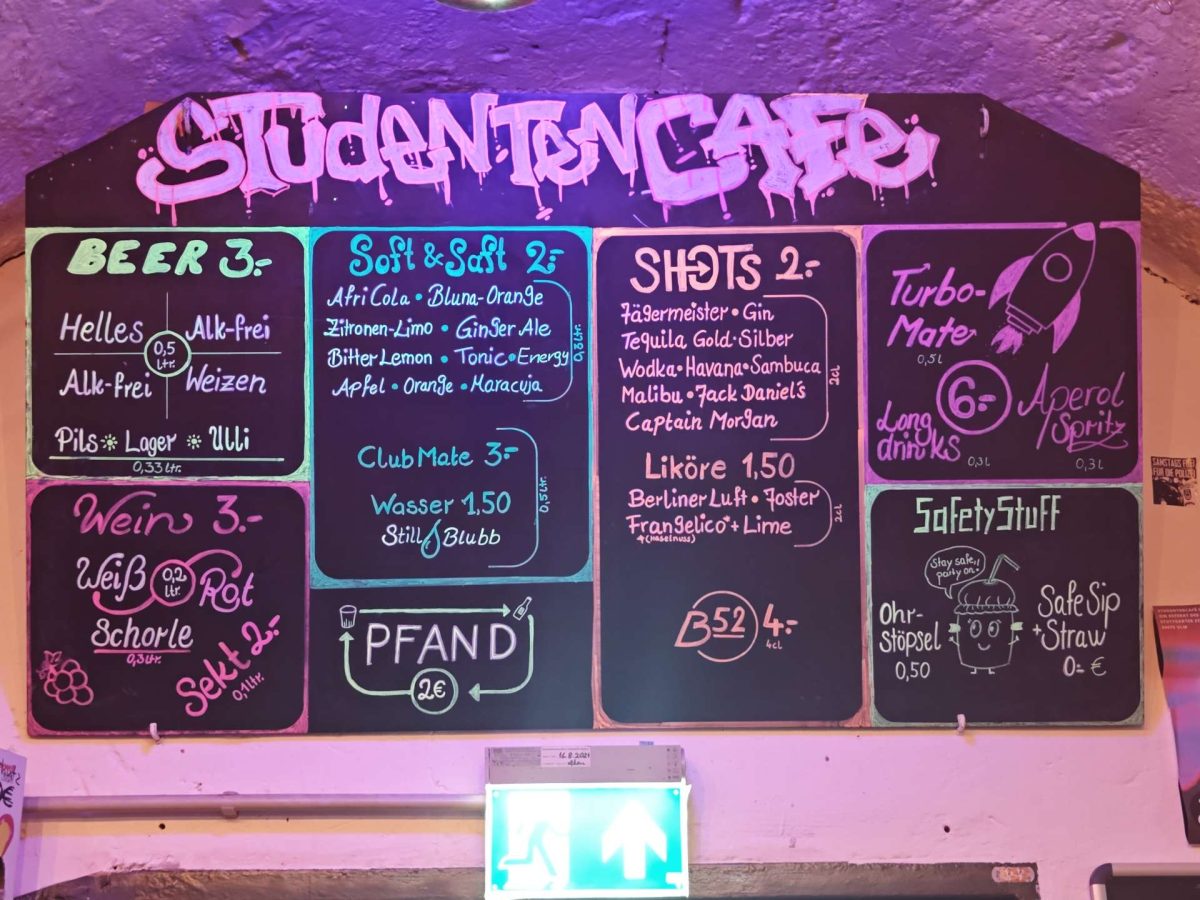 STUDENTENCAFE
BEER 3.-
Helles Alk-frei
0,5 Ltr.
Alk-frei Weizen
Pils Lager Ulli
0,33 Ltr.
Wein 3.-
Weiß 0,2 Ltr. Rot
Schorle
0,3 Ltr.
Sekt 2.-
0,1 Ltr.
Soft & Saft 2.-
Afri Cola • Bluna-Orange
Zitronen-Limo • Ginger Ale
Bitter Lemon • Tonic • Energy
Apfel • Orange • Maracuja
0,3 Ltr.
Club Mate 3.-
Wasser 1,50
Still Blubb
0,5 Ltr.
PFAND
2€
SHOTS 2.-
Jägermeister • Gin
Tequila Gold • Silber
Wodka • Havana • Sambuca
Malibu • Jack Daniel's
Captain Morgan
2cl
Liköre 1,50
Berliner Luft • Foster
Frangelico + Lime
(Haselnuss)
2cl
B52 4.-
4cl
Turbo-
Mate
0,5 L
6.-
Long
drinks
0,3 L
Aperol
Spritz
0,3 L
Safety Stuff
Stay safe,
party on!
Ohr-
Stöpsel
0,50
Safe Sip
+ Straw
0.- €
SAMSTAGS FIT
FÜR DIE POLIZEI